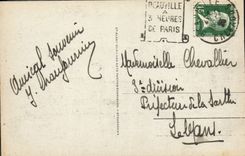 DEAUVILLE
A
3 HEURES
DE PARIS
Amical Souvenir
Mademoiselle Chevallier
3e division
Préfecture de la Sarthe
Le Mans